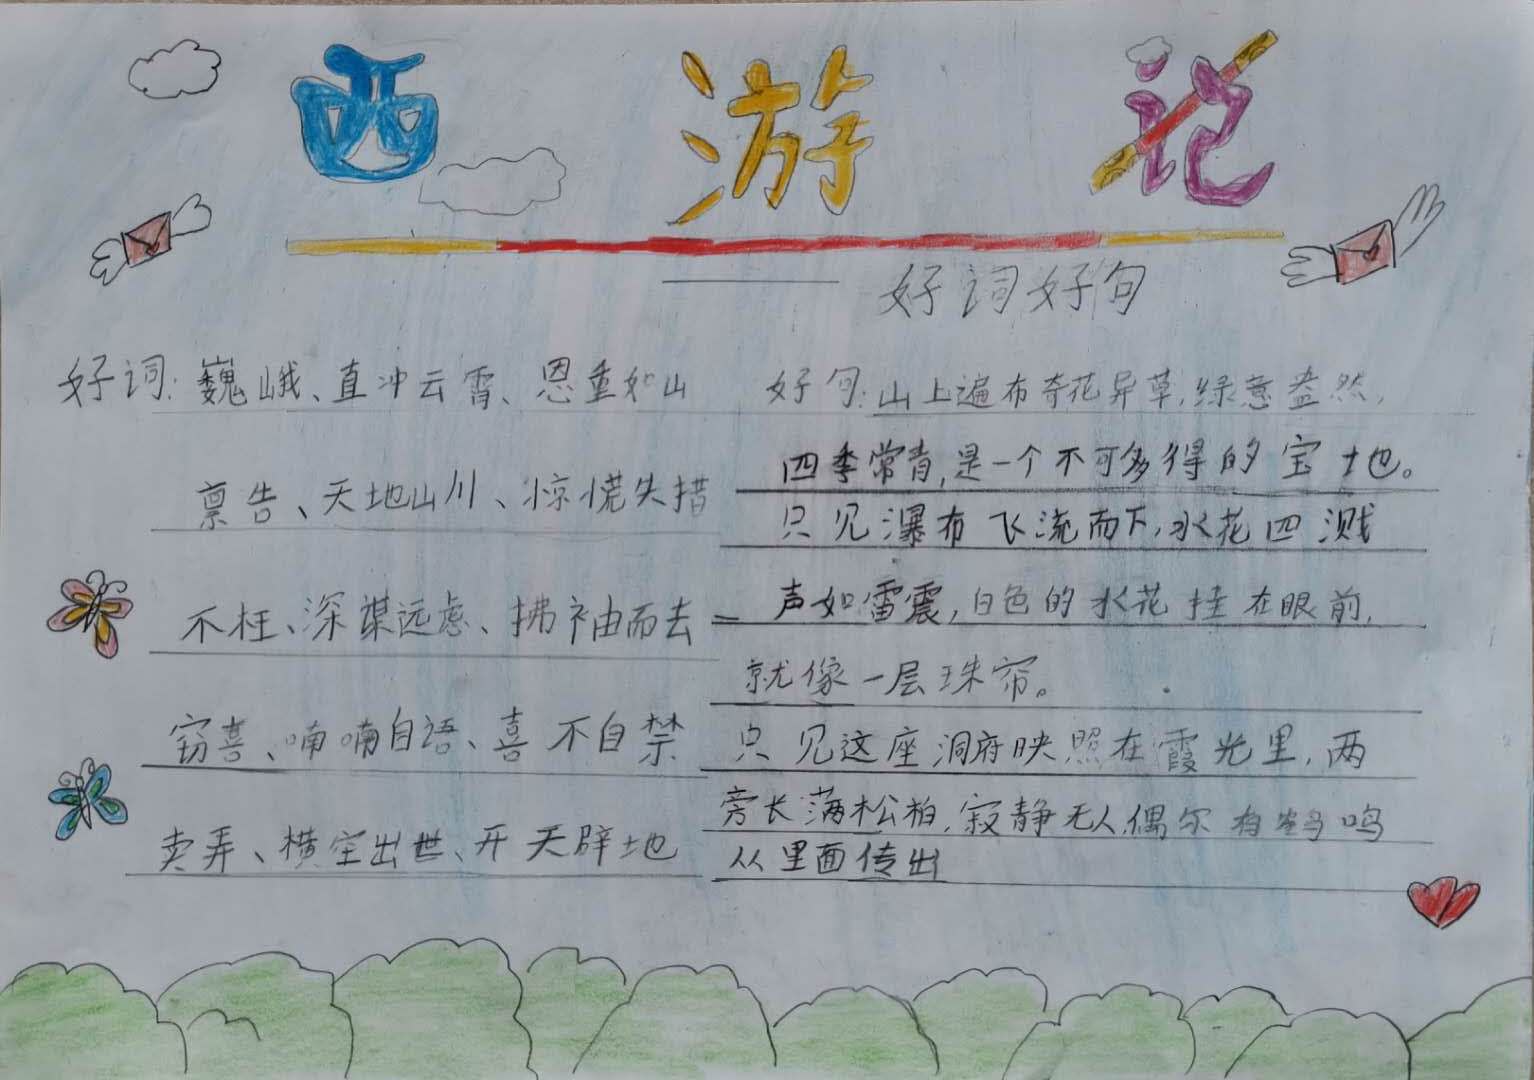 西游记
——好词好句
好词:巍峨、直冲云霄、恩重如山
禀告、天地山川、惊慌失措
不枉、深谋远虑、拂袖而去
窃喜、喃喃自语、喜不自禁
卖弄、横空出世、开天辟地
好句:山上遍布奇花异草,绿意盎然,
四季常青,是一个不可多得的宝地。
只见瀑布飞流而下,水花四溅
声如雷震,白色的水花挂在眼前,
就像一层珠帘。
只见这座洞府映照在霞光里,两
旁长满松柏,寂静无人,偶尔有鸟鸣
从里面传出